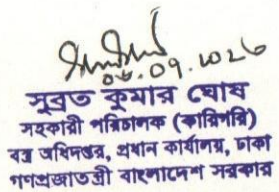 ০৮.০৭.২০২৬
সুব্রত কুমার ঘোষ
সহকারী পরিচালক (কারিগরি)
বস্ত্র অধিদপ্তর, প্রধান কার্যালয়, ঢাকা
গণপ্রজাতন্ত্রী বাংলাদেশ সরকার